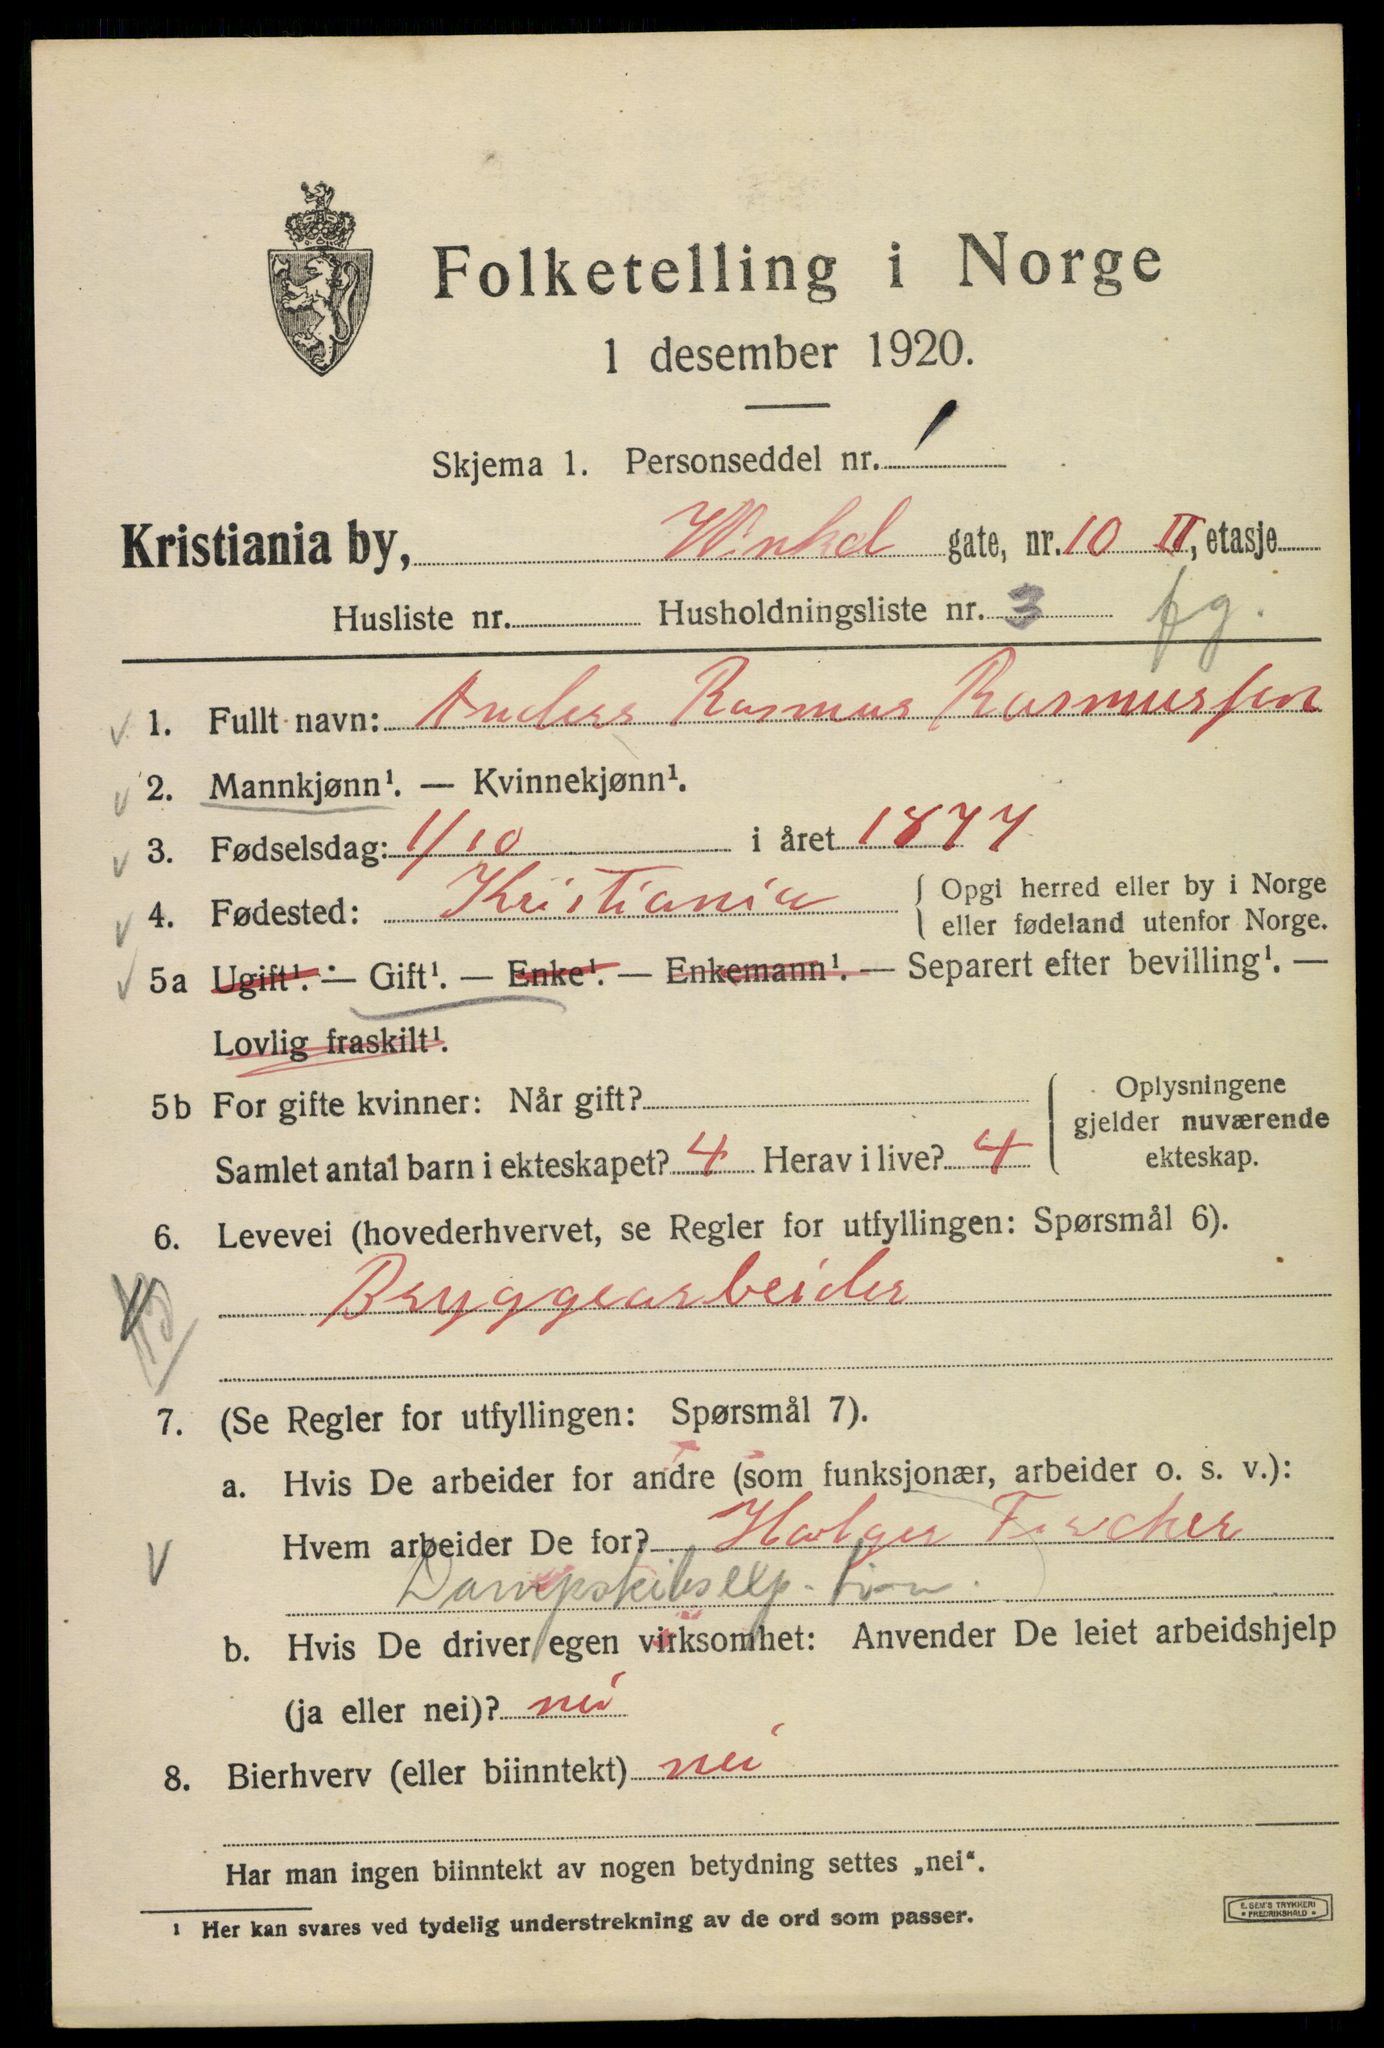 Folketelling i Norge
1 desember 1920.
Skjema 1. Personseddel nr. 1
Kristiania by, Winkel gate, nr. 10 II, etasje
Husliste nr. Husholdningsliste nr. 3 fg.
1. Fullt navn: Anders Rasmus Rasmussen
2. Mannkjønn¹. — Kvinnekjønn¹.
3. Fødselsdag: 1/10 i året 1877
4. Fødested: Kristiania { Opgi herred eller by i Norge
eller fødeland utenfor Norge.
5a Ugift¹. — Gift¹. — Enke¹. — Enkemann¹. — Separert efter bevilling¹. —
Lovlig fraskilt¹.
5b For gifte kvinner: Når gift? { Oplysningene
gjelder nuværende
Samlet antal barn i ekteskapet? 4 Herav i live? 4 ekteskap.
6. Levevei (hovederhvervet, se Regler for utfyllingen: Spørsmål 6).
Bryggearbeider
7. (Se Regler for utfyllingen: Spørsmål 7).
a. Hvis De arbeider for andre (som funksjonær, arbeider o. s. v.):
Hvem arbeider De for? Holger Fischer
Dampskibsexp.
b. Hvis De driver egen virksomhet: Anvender De leiet arbeidshjelp
(ja eller nei)? nei
8. Bierhverv (eller biinntekt) nei
Har man ingen biinntekt av nogen betydning settes „nei“.
¹ Her kan svares ved tydelig understrekning av de ord som passer.
E. SEM'S TRYKKERI
• FREDRIKSHALD •